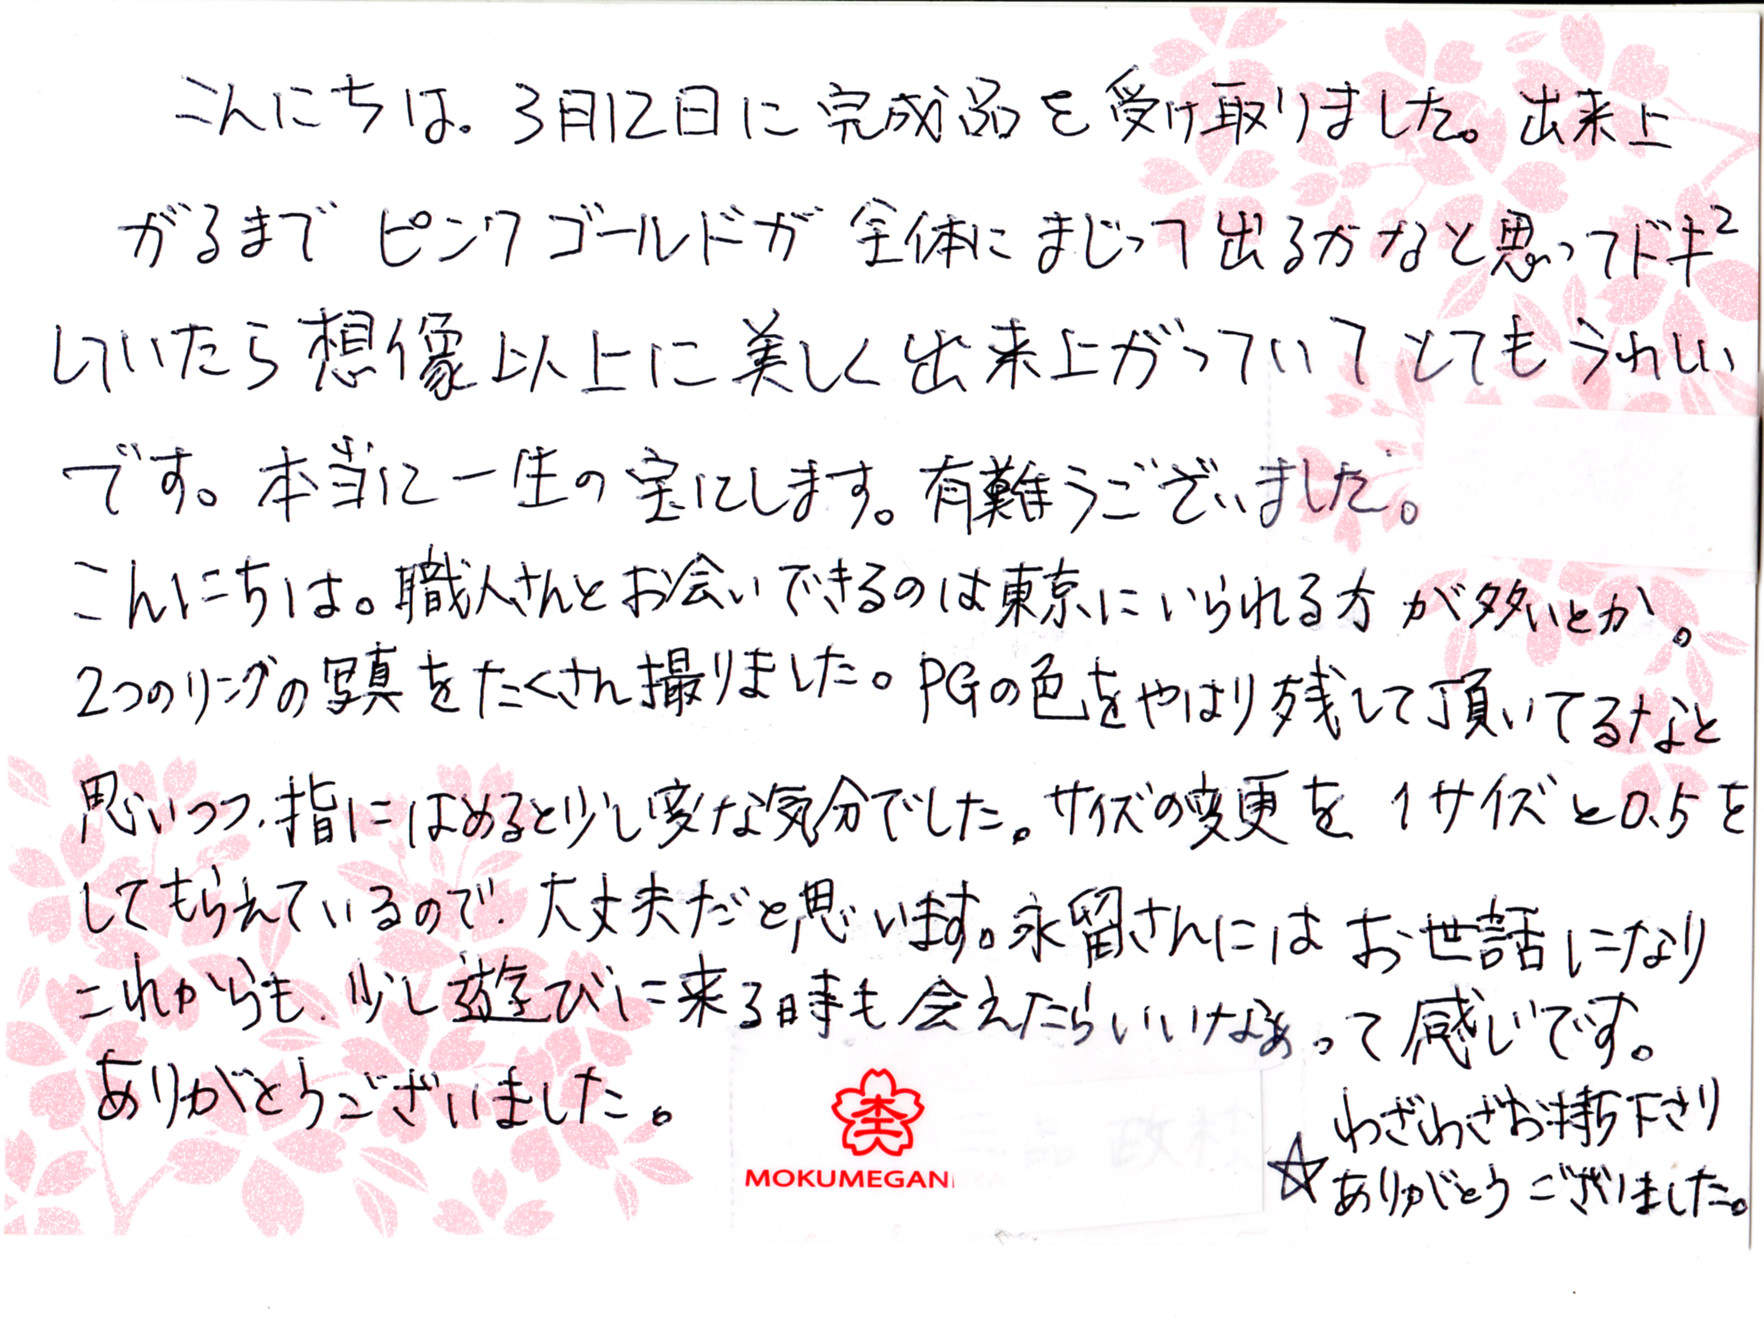 こんにちは。3月12日に完成品を受け取りました。出来上
がるまでピンクゴールドが全体にまじって出るかなと思ってドキ²
していたら想像以上に美しく出来上がっていてとてもうれしい
です。本当に一生の宝にします。有難うございました。
こんにちは。職人さんとお会いできるのは東京にいられる方が多いとか。
2つのリングの写真をたくさん撮りました。PGの色をやはり残して頂いてるなと
思いつつ、指にはめると少し変な気分でした。サイズの変更を1サイズと0.5を
してもらえているので、大丈夫だと思います。永留さんにはお世話になり
これからも、少し遊びに来る時も会えたらいいなぁって感じです。
ありがとうございました。
MOKUMEGAN
☆わざわざお持ち下さり
ありがとうございました。